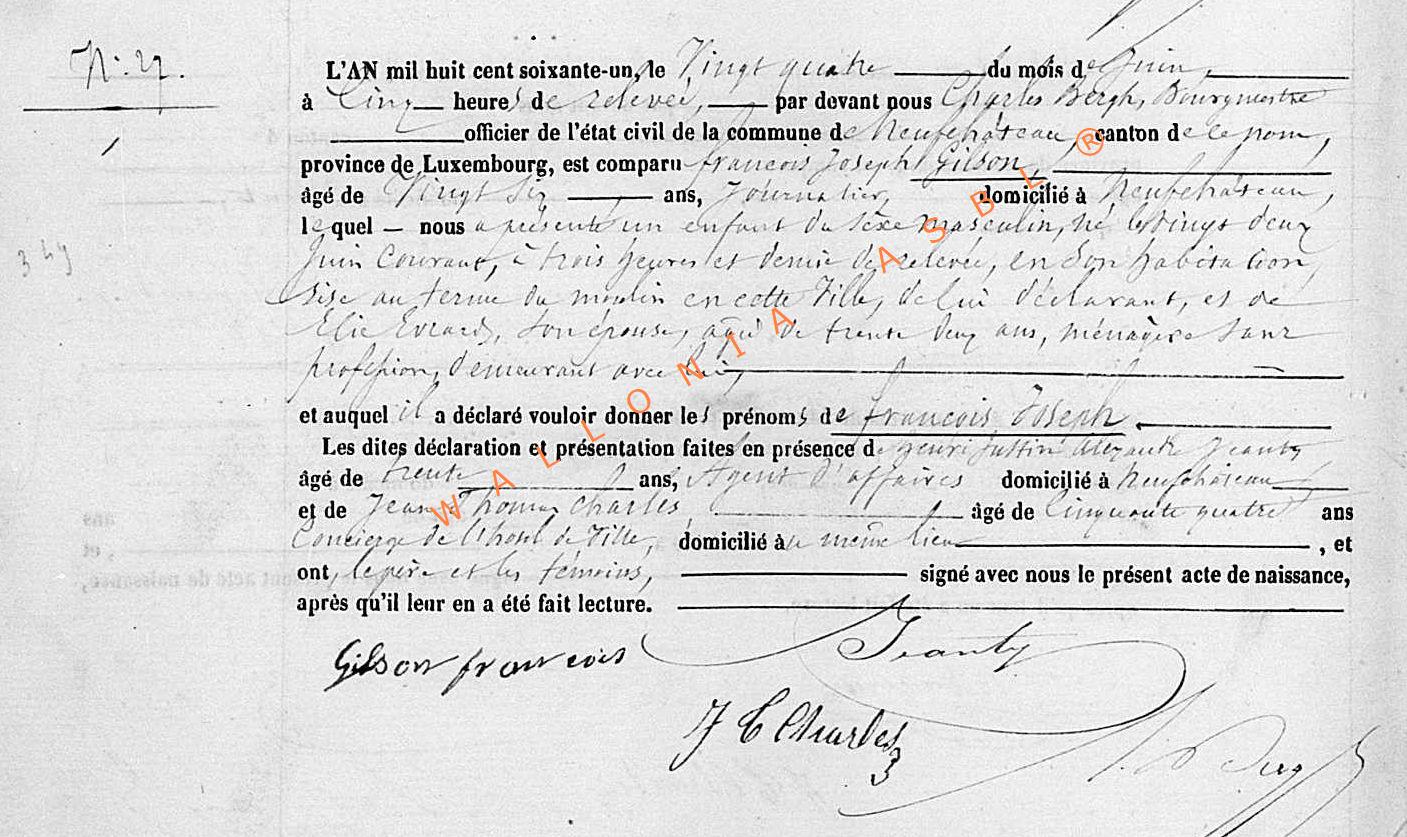 N° 27.
L'AN mil huit cent soixante-un, le Vingt quatre du mois de Juin,
à Cinq heures de relevée, par devant nous Charles Bergh, Bourgmestre
officier de l'état civil de la commune de Neufchâteau, canton de ce nom,
province de Luxembourg, est comparu françois Joseph Gilson
âgé de Vingt Six ans, Journalier, domicilié à Neufchâteau,
lequel nous a présenté un enfant du sexe masculin, né le Vingt deux
Juin Courant, à trois heures et demie de relevée, en son habitation
sise au terme du moulin en cette Ville, de lui déclarant, et de
Elie Evrard, son épouse, âgée de trente deux ans, ménagère sans
profession, demeurant avec lui,
et auquel il a déclaré vouloir donner les prénoms de françois Joseph
Les dites déclaration et présentation faites en présence de henri Justin Alexandre Jeanty
âgé de trente ans, Agent d'affaires domicilié à Neufchâteau
et de Jean Thomas Charles, âgé de Cinquante quatre ans
Concierge de l'hotel de Ville, domicilié au même lieu, et
ont, le père et les témoins, signé avec nous le présent acte de naissance,
après qu'il leur en a été fait lecture.
Gilson françois Jeanty
J C Charles
349
WALLONIA ASBL ®